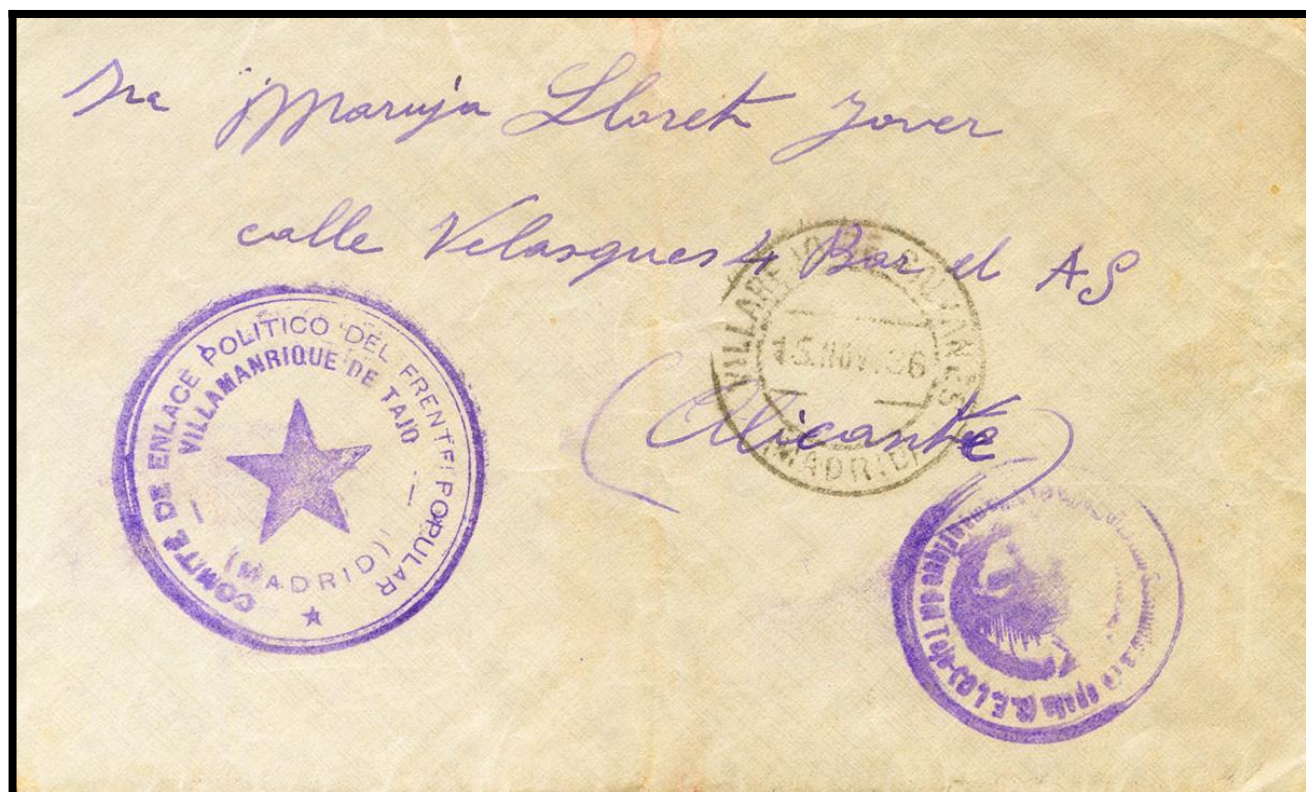 Sra Maruja Lloret Jover
calle Velasques 4 Bar el AS
(Alicante)
COMITE DE ENLACE POLITICO DEL FRENTE POPULAR
VILLAMANRIQUE DE TAJO
(MADRID)
VILLAREJO DE SALVANES
15.NOV.36
MADRID